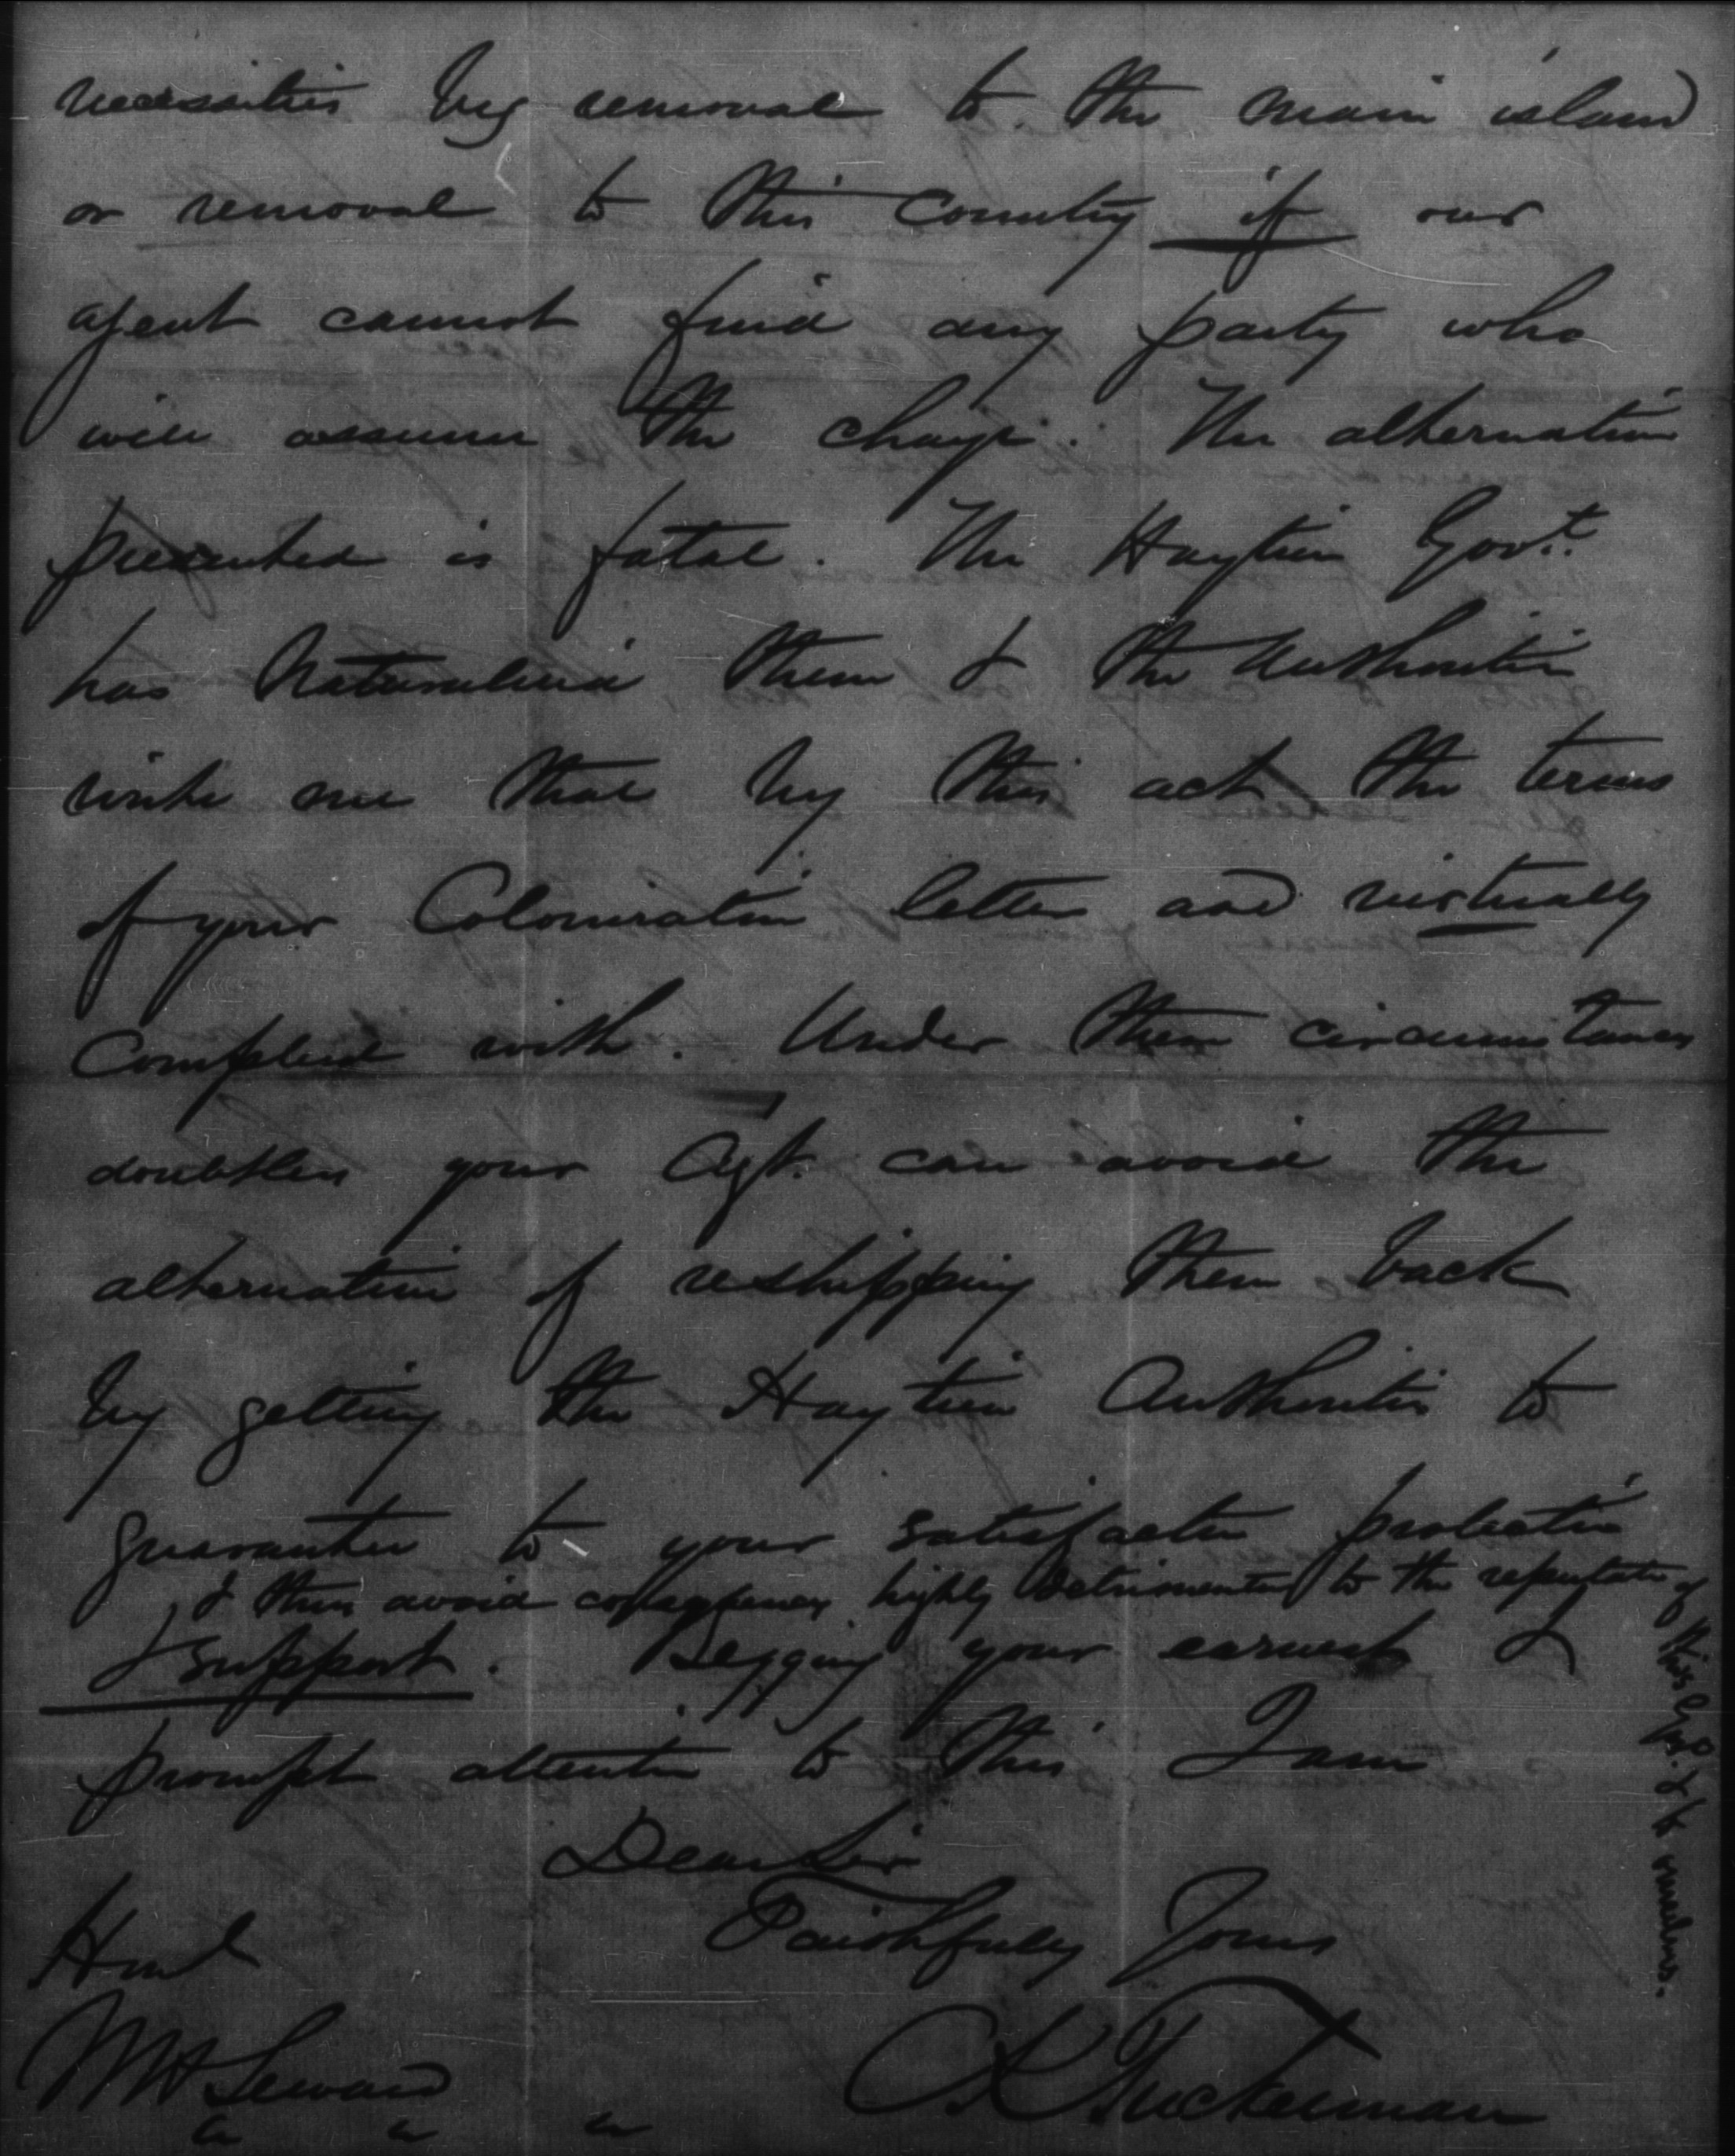 necessities by removal to the main island
or removal to this Country if our
agent cannot find any party who
will assume the charge. The alternative
presented is fatal. The Haytien Govt.
has Naturalized them & the Authorities
write me that by this act the terms
of your Colonization letter are virtually
Complied with. Under these circumstances
doubtless your Agt. can avoid the
alternative of reshipping them back
by getting the Haytien Authorities to
guarantee to your satisfaction protection
& thus avoid highly detrimental to the reputation of this Govt. & to
& support. Begging your earnest &
prompt attention to this I am
Dear Sir
Faithfully Yours
Honl
W H Seward
C K Tuckerman